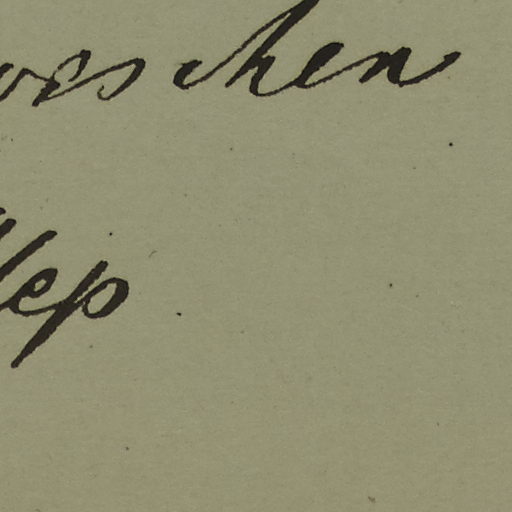 orschen
llep